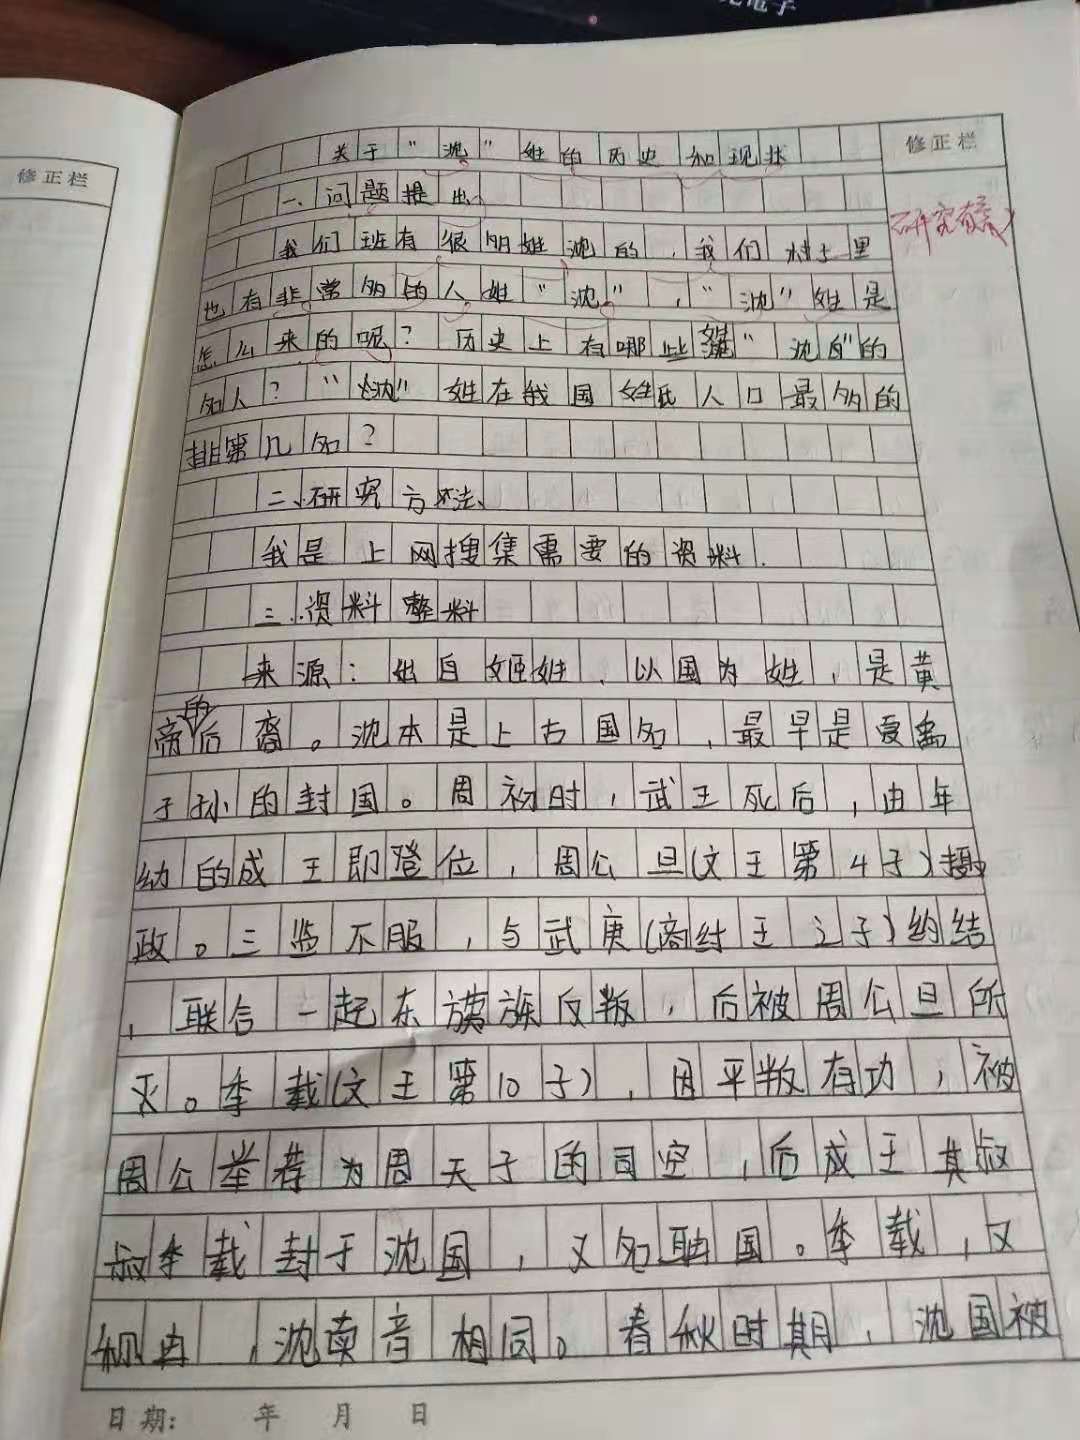 电子
修正栏
修正栏
关于“沈”姓的历史和现状
研究有意义
一、问题提出
我们班有很多姓沈的，我们村子里
也有非常多的人姓“沈”，“沈”姓是
怎么来的呢？历史上有哪些姓“沈”的
名人？“沈”姓在我国姓氏人口最多的
排第几名？
二、研究方法、
我是上网搜集需要的资料.
三.资料整料
来源：出自姬姓、以国为姓，是黄
帝的后裔。沈本是上古国名，最早是夏禹
子孙的封国。周初时，武王死后，由年
幼的成王即登位，周公旦(文王第4子)摄
政。三监不服，与武庚(商纣王之子)约结
，联合一起东族反叛，后被周公旦所
灭。季载(文王第10子)，因平叛有功，被
周公举荐为周天子的司空，后成王其叔
叔季载封于沈国，又名聃国。季载，又
称冉，沈读音相同。春秋时期，沈国被
日期： 年 月 日